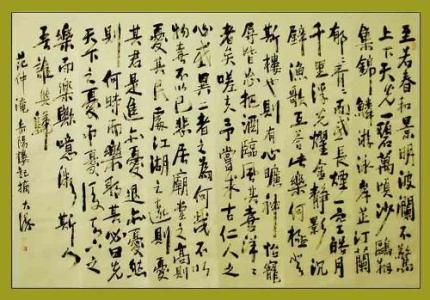 至若春和景明波瀾不驚
上下天光一碧萬頃沙鷗翔
集錦鱗游泳岸芷汀蘭
郁々青々而或長煙一空皓月
千里浮光耀金靜影沉
璧漁歌互答此樂何極登
斯樓也則有心曠神怡寵
辱皆忘把酒臨風其喜洋々
者矣嗟夫予嘗求古仁人之
心或異二者之為何哉不以
物喜不以己悲居廟堂之高則
憂其民處江湖之遠則憂
其君是進亦憂退亦憂然
則何時而樂耶其必曰先
天下之憂而憂後天下之
樂而樂歟噫微斯人
吾誰與歸
范仲淹岳陽樓記摘